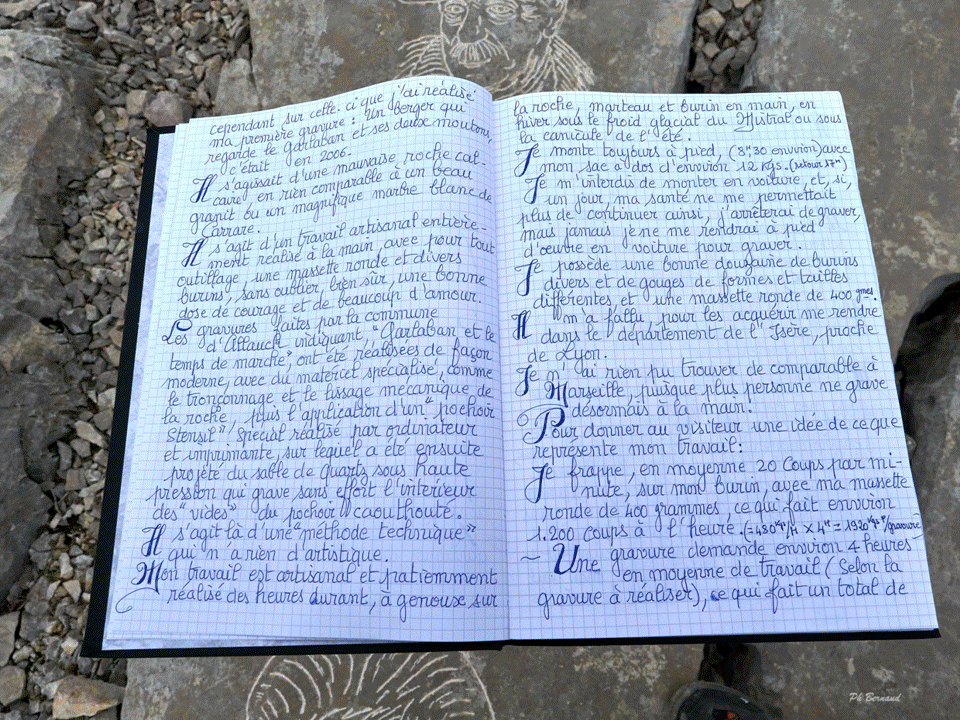 cependant sur celle-ci que j'ai réalisé
ma première gravure : Un berger qui
regarde le Garlaban et ses doux moutons,
c'était en 2006.
Il s'agissait d'une mauvaise roche cal-
caire, en rien comparable à un beau
granit ou un magnifique marbre blanc de
Carrare.
Il s'agit d'un travail artisanal entière-
ment réalisé à la main, avec pour tout
outillage, une massette ronde et divers
burins, sans oublier, bien sûr, une bonne
dose de courage et de beaucoup d'amour.
Les gravures faites par la commune
d'Allauch indiquant, "Garlaban et le
temps de marche", ont été réalisées de façon
moderne, avec du matériel spécialisé, comme
le tronçonnage et le lissage mécanique de
la roche, puis l'application d'un "pochoir
Stensil" spécial réalisé par ordinateur
et imprimante, sur lequel a été ensuite
projeté du sable de Quarts sous haute
pression qui grave sans effort l'intérieur
des "vides" du pochoir caouthouté.
Il s'agit là d'une "méthode technique"
qui n'a rien d'artistique.
Mon travail est artisanal et patiemment
réalisé des heures durant, à genoux sur
la roche, marteau et burin en main, en
hiver sous le froid glacial du Mistral ou sous
la canicule de l'été.
Je monte toujours à pied, (8H,30 environ) avec
mon sac à dos d'environ 12 Kgs. (retour 17H)
Je m'interdis de monter en voiture, et, si,
un jour, ma santé ne me permettait
plus de continuer ainsi, j'arrêterai de graver,
mais jamais je ne me rendrai à pied
d'œuvre en voiture pour graver.
Je possède une bonne douzaine de burins
divers et de gouges de formes et tailles
différentes, et une massette ronde de 400 gmes.
Il m'a fallu pour les acquérir me rendre
dans le département de l'Isère, proche
de Lyon.
Je n'ai rien pu trouver de comparable à
Marseille, puisque plus personne ne grave
désormais à la main.
Pour donner au visiteur une idée de ce que
représente mon travail :
Je frappe, en moyenne 20 Coups par mi-
nute, sur mon burin, avec ma massette
ronde de 400 grammes, ce qui fait environ
1.200 coups à l'heure. (=480Kgs/H X 4H = 1920Kgs/gravure)
~ Une gravure demande environ 4 heures
en moyenne de travail (Selon la
gravure à réaliser), ce qui fait un total de
Ph Bernand